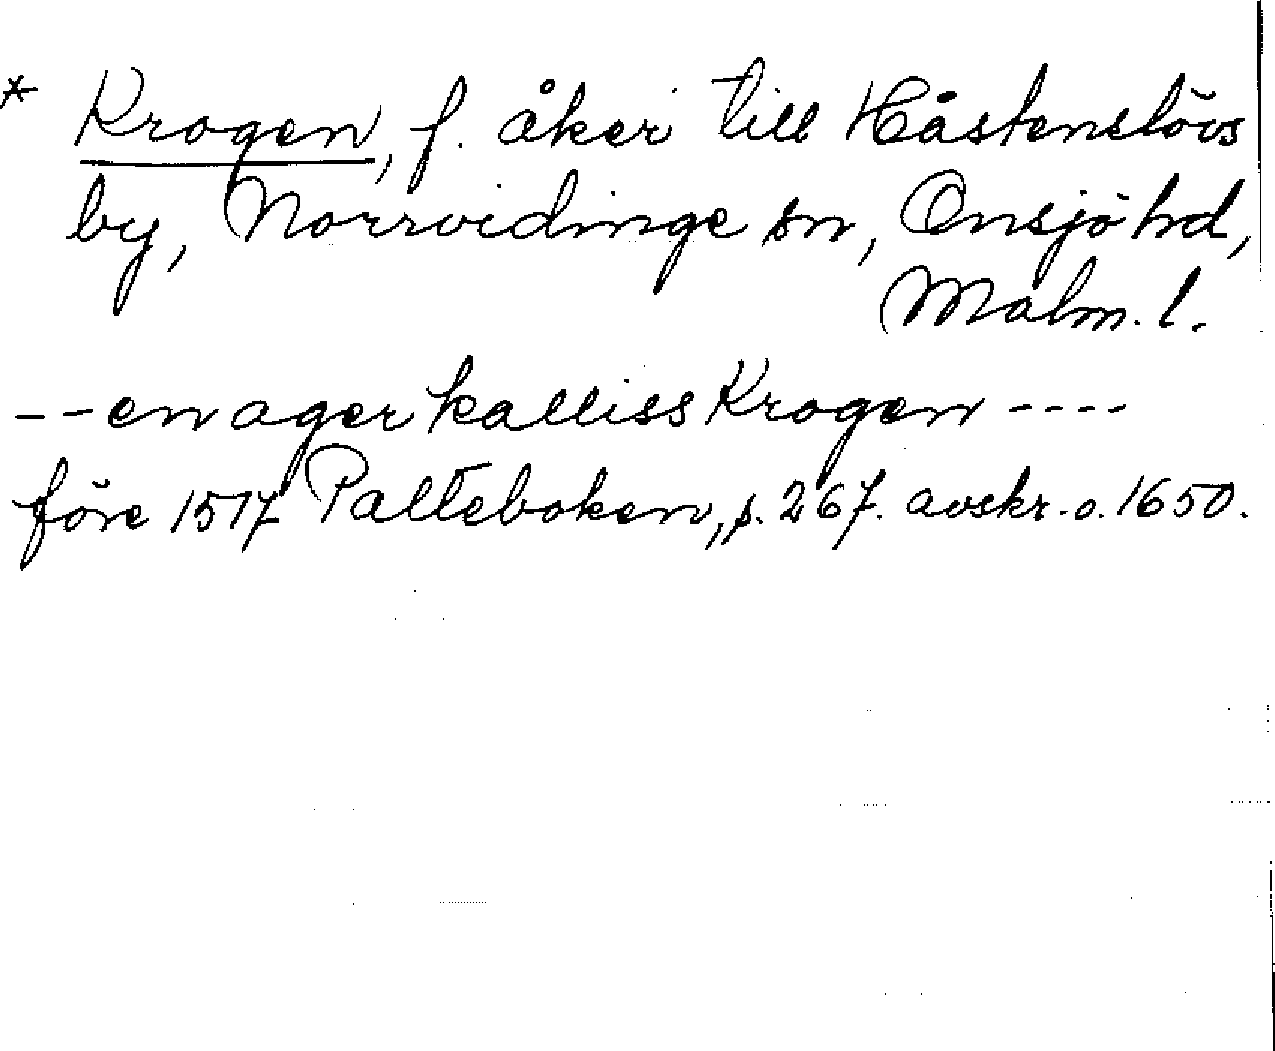 * Krogen, f. åker till Håstenslövs
by, Norrvidinge sn, Onsjö hd,
Malm. l.
-- en ager kalliss Krogen ----
före 1517 Palteboken, s. 267. avskr. o. 1650.